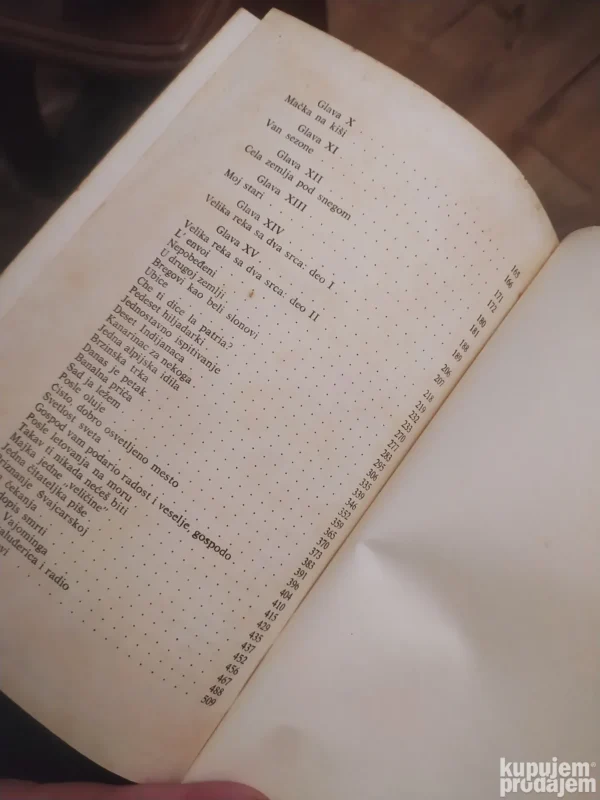 Glava X 165
Mačka na kiši 166
Glava XI 171
Van sezone 172
Glava XII 180
Cela zemlja pod snegom 181
Glava XIII 188
Moj stari 189
Glava XIV 206
Velika reka sa dva srca: deo I 207
Glava XV 218
Velika reka sa dva srca: deo II 219
L' envoi 232
Nepobeđeni 233
U drugoj zemlji 270
Bregovi kao beli slonovi 277
Ubice 283
Che ti dice la patria? 295
Pedeset hiljadarki 306
Jednostavno ispitivanje 335
Deset Indijanaca 339
Kanarinac za nekoga 346
Jedna alpijska idila 352
Brzinska trka 359
Danas je petak 365
Banalna priča 370
Sad ja ležem 373
Posle oluje 383
Čisto, dobro osvetljeno mesto 391
Svetlost sveta 396
Gospod vam podario radost i veselje, gospodo 404
Posle letovanja na moru 410
Takav ti nikada nećeš biti 415
Majka jedne „veličine" 429
Jedna čitateljka piše 435
Priznanje Švajcarskoj 437
čekanja 452
smrti 456
Vajominga 467
i radio 488
509
kupujem
prodajem